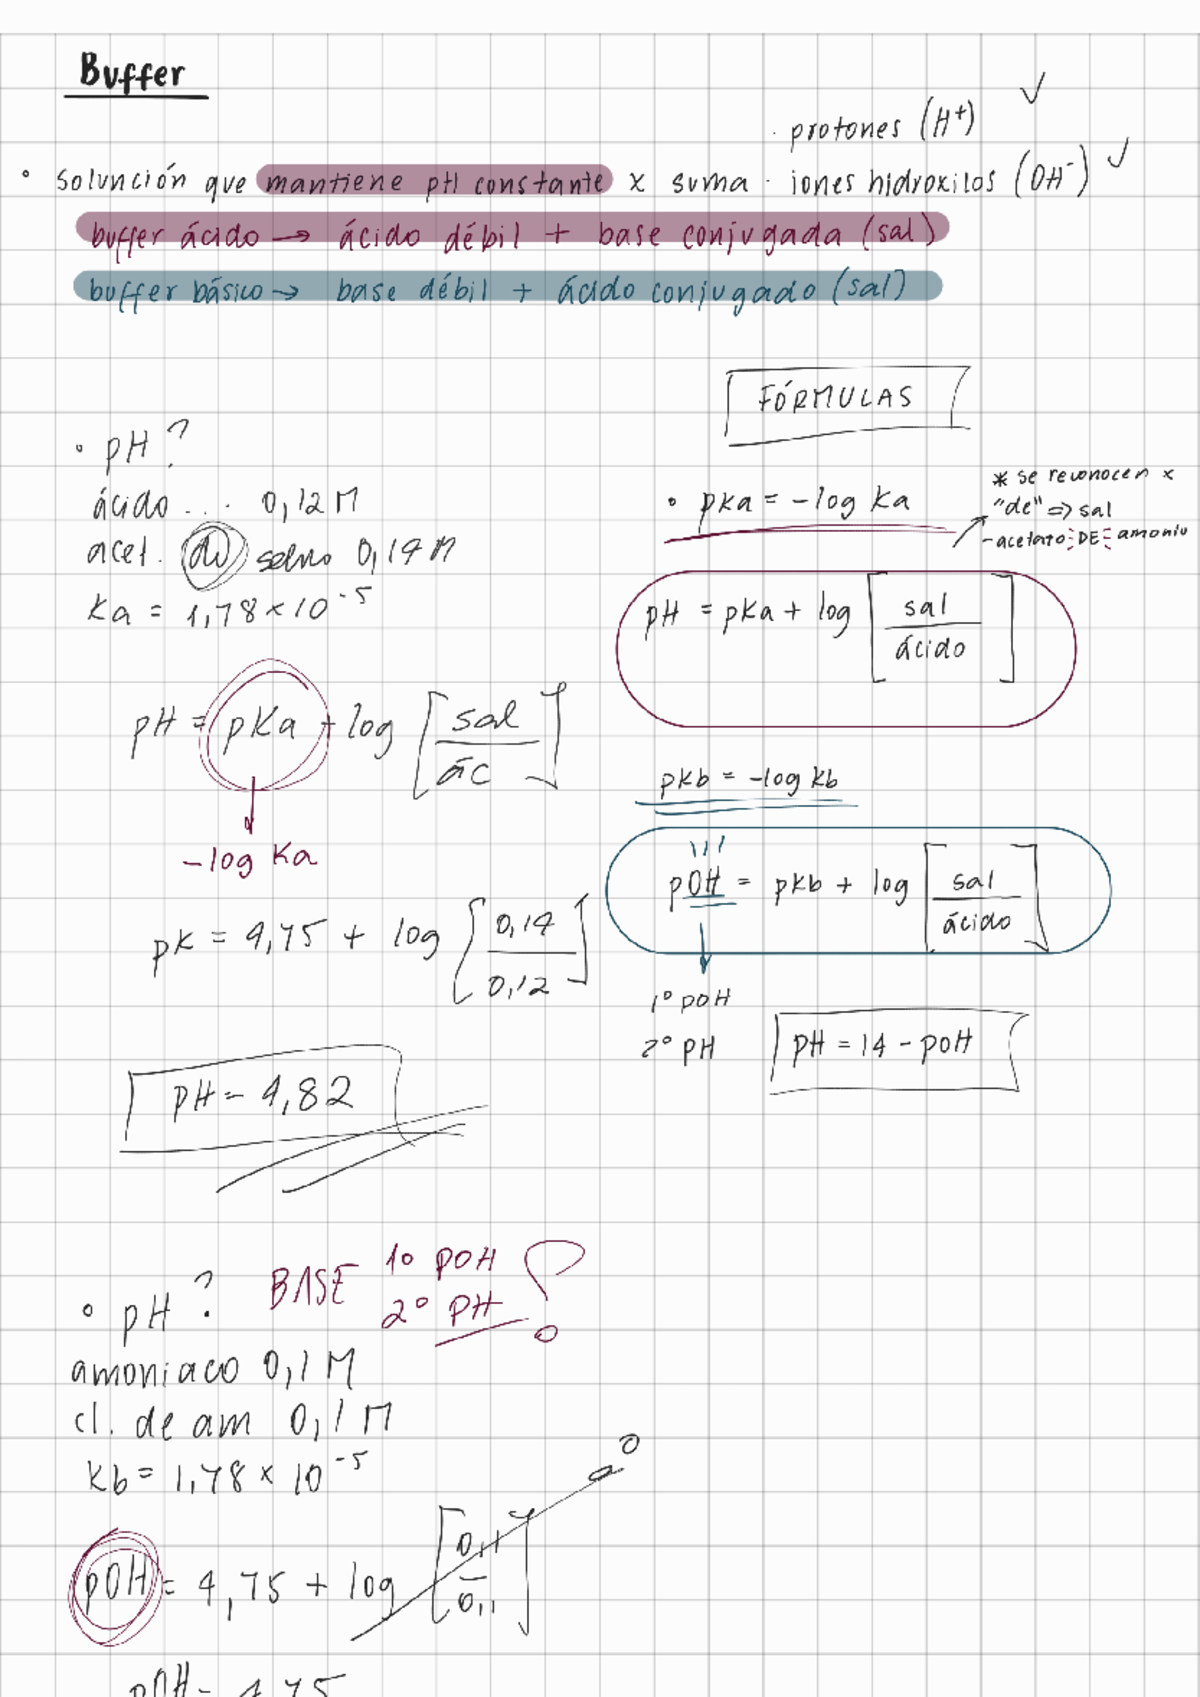 Buffer
· protones (H⁺) ✓
• Solunción que mantiene pH constante x suma · iones hidroxilos (OH⁻) ✓
buffer ácido → ácido débil + base conjugada (sal)
buffer básico → base débil + ácido conjugado (sal)
• pH?
ácido .... 0,12 M
acet. de 0,14 M
Ka = 1,78 × 10⁻⁵
pH = pKa + log [sal / ác]
↓
-log Ka
pK = 4,75 + log [0,14 / 0,12]
pH = 4,82
FÓRMULAS
• pKa = -log Ka
* se reconocen x
"de" => sal
-acetato DE amonio
pH = pKa + log [sal / ácido]
pKb = -log Kb
pOH = pKb + log [sal / ácido]
↓
1º pOH
2º pH
pH = 14 - pOH
• pH? BASE 1º pOH
2º pH !
amoniaco 0,1 M
cl. de am 0,1 M
Kb = 1,78 × 10⁻⁵
pOH = 4,75 + log [0,1 / 0,1] 0
pOH = 4,75